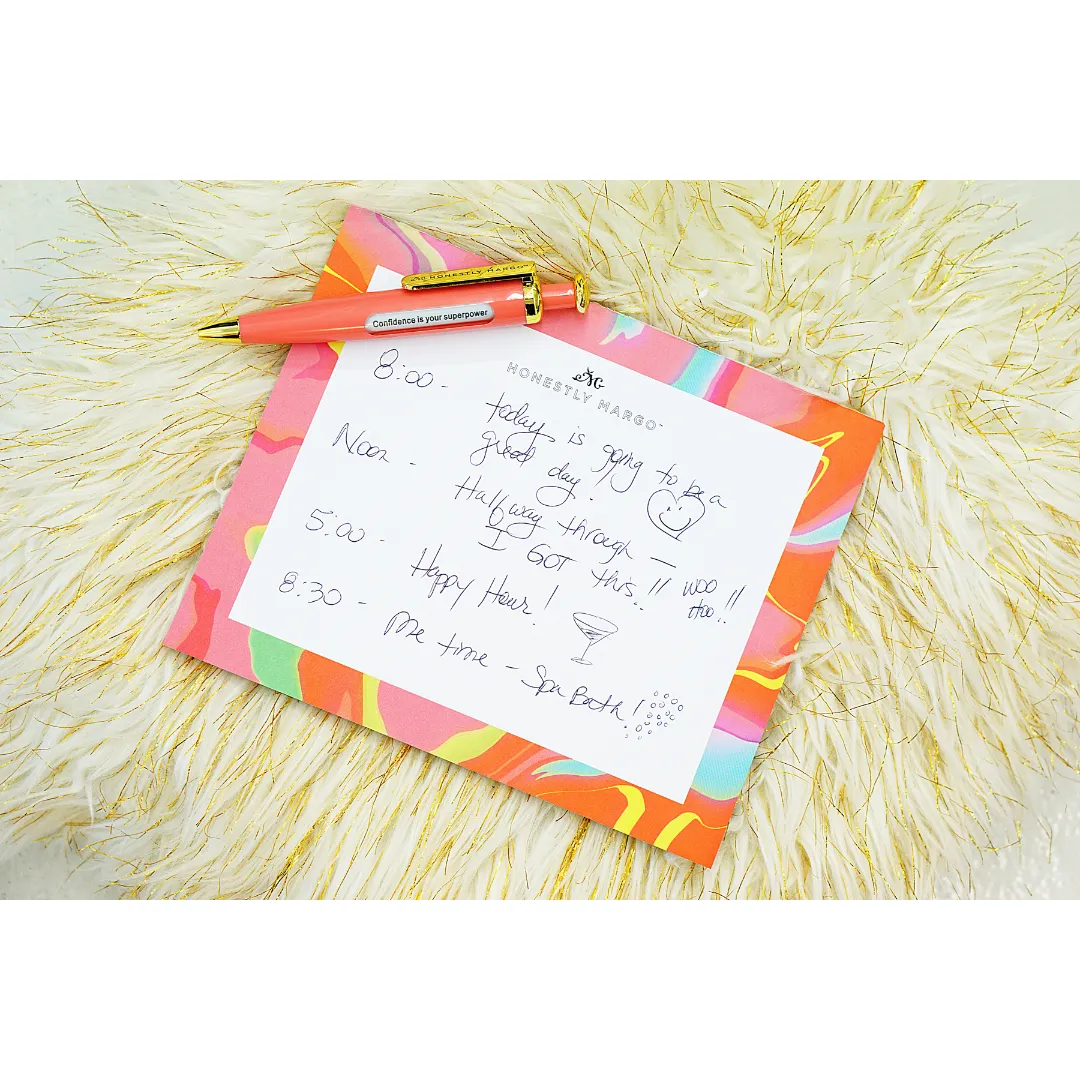 HONESTLY MARGO
Confidence is your superpower
HONESTLY MARGO™
8:00 - today is going to be a
great day.
Noon - Halfway through —
I GOT this..!! woo
Hoo..!!
5:00 - Happy Hour!
8:30 - Me time - Spa Bath!